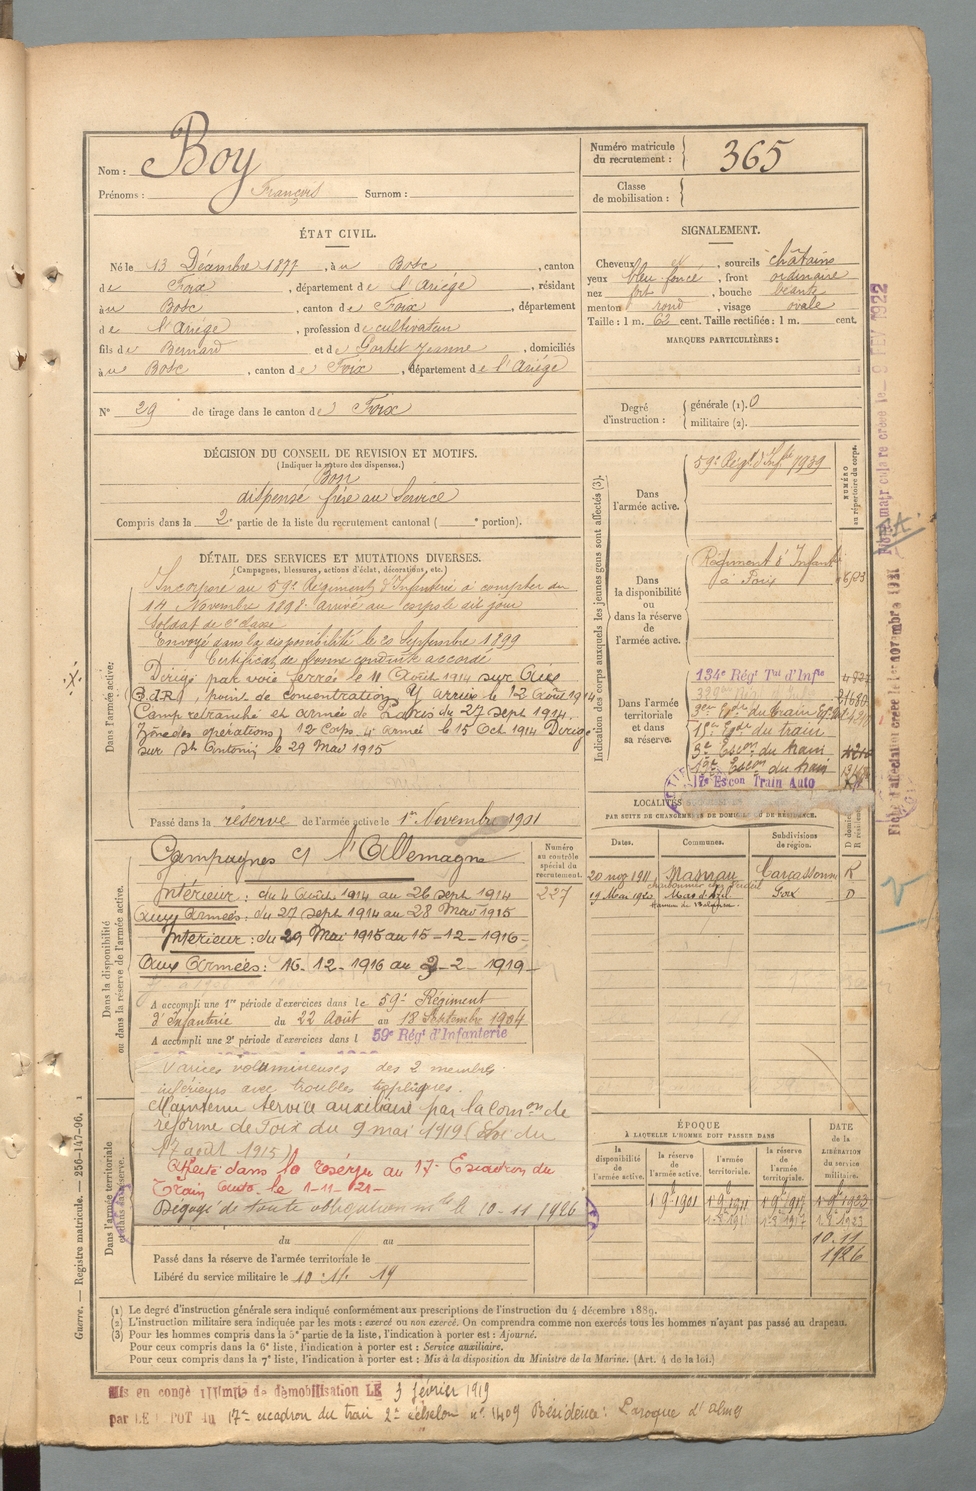 Nom : Boy
Prénoms : François Surnom :
Numéro matricule du recrutement : 365
Classe de mobilisation :
ÉTAT CIVIL.
Né le 13 Décembre 1877, à u Bosc, canton
de Foix, département de l'Ariège, résidant
à u Bosc, canton de Foix, département
de l'Ariège, profession de cultivateur
fils de Bernard et de Gorbet Jeanne, domiciliés
à u Bosc, canton de Foix, département de l'Ariège
N° 29 de tirage dans le canton de Foix
SIGNALEMENT.
Cheveux et, sourcils châtains
yeux bleu foncé, front ordinaire
nez fort, bouche béante
menton rond, visage ovale
Taille : 1 m. 62 cent. Taille rectifiée : 1 m. cent.
MARQUES PARTICULIÈRES :
Degré d'instruction : générale (1). 0
militaire (2).
DÉCISION DU CONSEIL DE REVISION ET MOTIFS.
(Indiquer la nature des dispenses.)
Bon
dispensé frère au Service
Compris dans la 2e partie de la liste du recrutement cantonal ( e portion).
DÉTAIL DES SERVICES ET MUTATIONS DIVERSES.
(Campagnes, blessures, actions d'éclat, décorations, etc.)
Dans l'armée active.
Incorporé au 59e Régiment d'Infanterie à compter du
14 Novembre 1898 arrivé au corps le dit jour
Soldat de 2e classe
Envoyé dans la disponibilité le 20 Septembre 1899
Certificat de bonne conduite accordé
Dirigé par voie ferrée le 11 Août 1914 sur
(B.d.R), point de concentration Y arrivé le 12 Août 1914
Camp retranché et armée de Paris du 27 sept 1914.
Zone des opérations, 12 Corps. 4e armée le 15 Oct 1914 Dirigé
sur St Antonin le 29 Mai 1915
Passé dans la réserve de l'armée active le 1er Novembre 1901
Indication des corps auxquels les jeunes gens sont affectés (3).
NUMÉRO au répertoire du corps.
Dans l'armée active.
59e Régt d'Infie 7989
Dans la disponibilité ou dans la réserve de l'armée active.
Régiment d'Infanterie
à Foix
Dans l'armée territoriale et dans sa réserve.
134e Régt Tal d'Infie
15e Esde du train
3e Escon du train
19e Escon du train
17e Escon Train Auto
LOCALITÉS
PAR SUITE DE CHANGEMENTS DE DOMICILE OU DE RÉSIDENCE.
Dates. Communes. Subdivisions de région. D domicile R résidence
20 nov 1911 Carcassonne R
19 Mai 1920 Mas d'Azil Foix D
Dans la disponibilité ou dans la réserve de l'armée active.
Numéro au contrôle spécial du recrutement.
227
Campagnes c/ l'Allemagne
Intérieur : du 4 Août 1914 au 26 sept 1914
Aux Armées : du 27 sept 1914 au 28 Mai 1915
Intérieur : du 29 Mai 1915 au 15-12-1916-
Aux Armées : 16-12-1916 au 2-2-1919-
A accompli une 1re période d'exercices dans le 59e Régiment
d'Infanterie du 22 Août au 18 Septembre 1904
A accompli une 2e période d'exercices dans l 59e Régt d'Infanterie
Varices volumineuses des 2 membres
inférieurs avec troubles trophiques.
Maintenu service auxiliaire par la Comon de
réforme de Foix du 9 mai 1919 (Loi du
17 août 1915)
Affecté dans la Réserve au 17e Escadron du
Train Auto le 1-11-21-
Dégagé de toute obligation mre le 10-11 1926
Dans l'armée territoriale et dans sa réserve.
du au
Passé dans la réserve de l'armée territoriale le
Libéré du service militaire le 10.11.19
ÉPOQUE
À LAQUELLE L'HOMME DOIT PASSER DANS
la disponibilité de l'armée active. la réserve de l'armée active. l'armée territoriale. la réserve de l'armée territoriale.
DATE de la LIBÉRATION du service militaire.
1 9bre 1901 1 9bre 1911 1 9bre 1917 1 9bre 1923
10.11
1926
(1) Le degré d'instruction générale sera indiqué conformément aux prescriptions de l'instruction du 4 décembre 1889.
(2) L'instruction militaire sera indiquée par les mots : exercé ou non exercé. On comprendra comme non exercés tous les hommes n'ayant pas passé au drapeau.
(3) Pour les hommes compris dans la 5e partie de la liste, l'indication à porter est : Ajourné.
Pour ceux compris dans la 6e liste, l'indication à porter est : Service auxiliaire.
Pour ceux compris dans la 7e liste, l'indication à porter est : Mis à la disposition du Ministre de la Marine. (Art. 4 de la loi.)
Mis en congé illimité de démobilisation LE 3 février 1919
par LE DEPOT du 17e escadron du train 2e échelon n° 1409 Résidence : Laroque d'Olmes
Guerre. — Registre matricule. — 256-147-96.